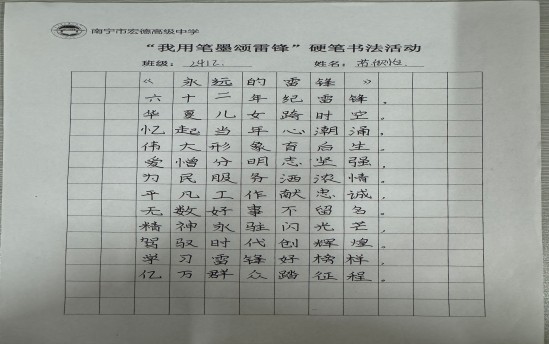 南宁市宏德高级中学
“我用笔墨颂雷锋”硬笔书法活动
班级：2412. 姓名：
《永远的雷锋》
六十二年纪雷锋，
华夏儿女跨时空。
忆起当年心潮涌，
伟大形象育后生。
爱憎分明志坚强，
为民服务洒深情。
平凡工作献忠诚，
无数好事不留名。
精神永驻闪光芒，
驾驭时代创辉煌。
学习雷锋好榜样，
亿万群众踏征程。